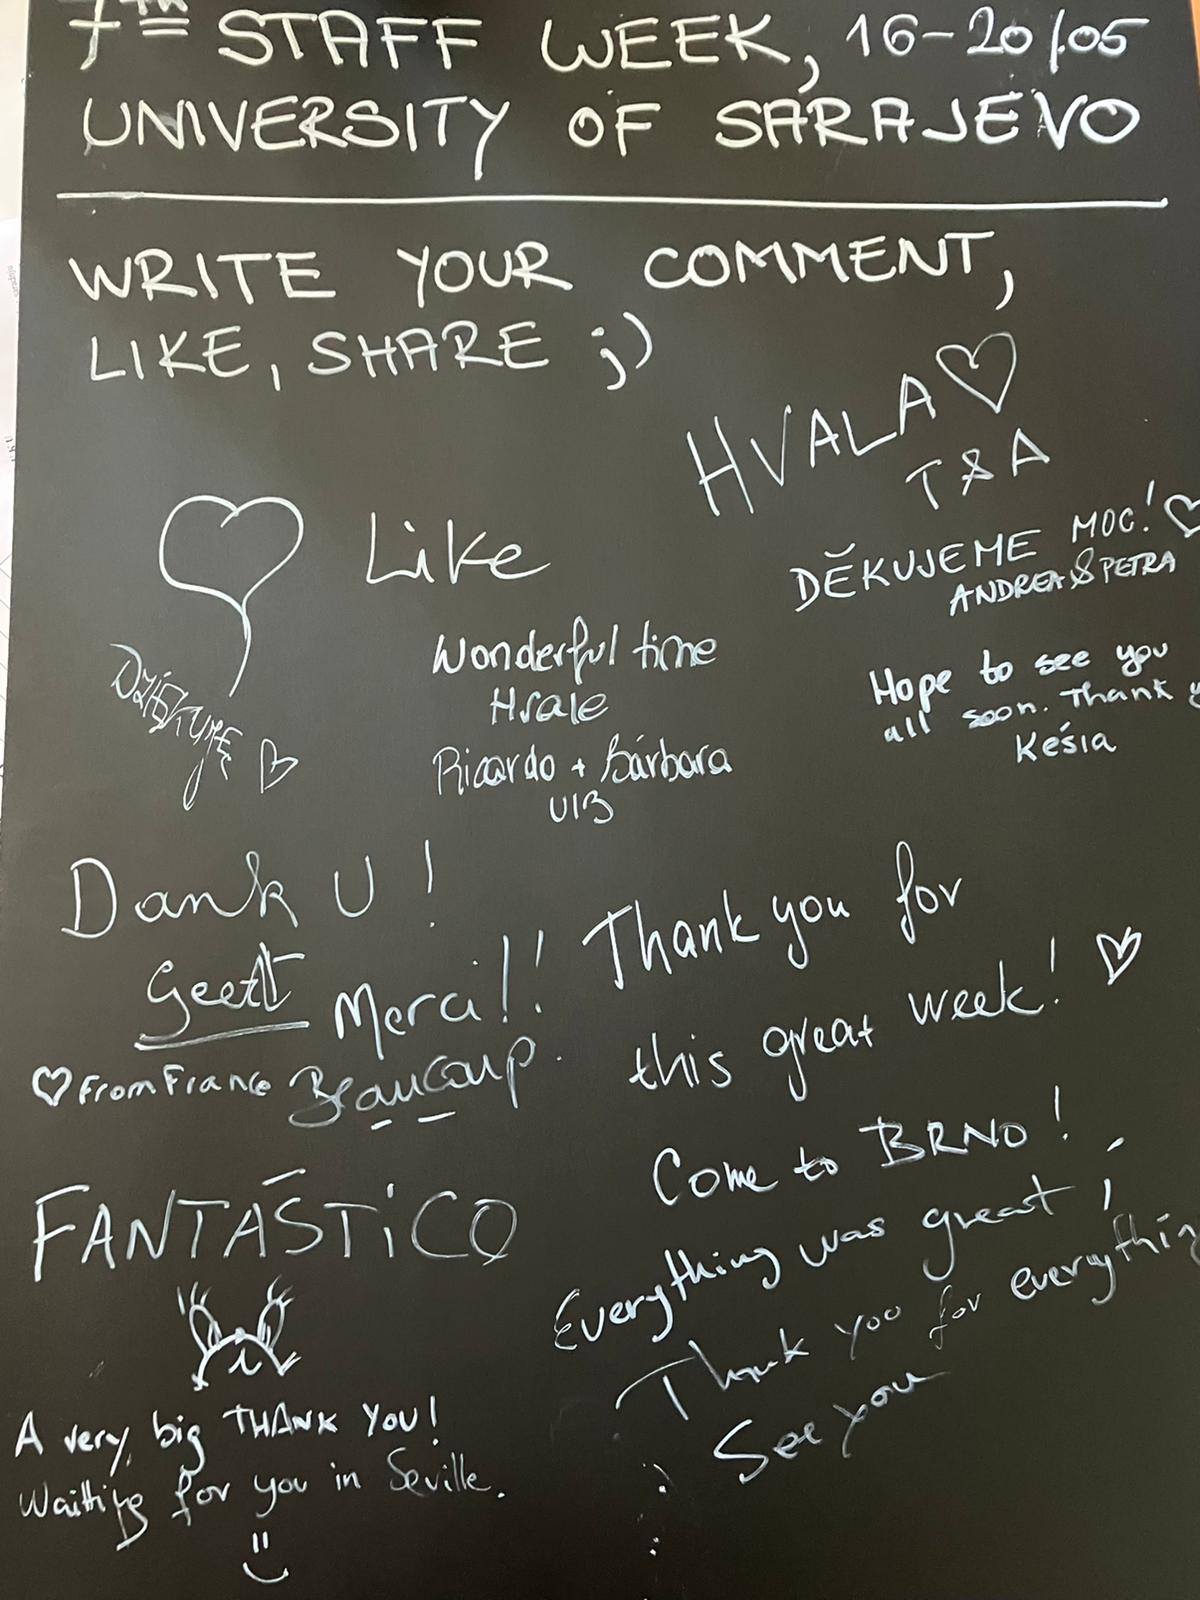 7TH STAFF WEEK, 16-20/05
UNIVERSITY OF SARAJEVO
WRITE YOUR COMMENT,
LIKE, SHARE ;)
HVALA
T & A
Like
DĚKUJEME MOC!
ANDREA & PETRA
DZIĘKUJĘ
Wonderful time
Hvale
Ricardo + Bárbara
UIB
Hope to see you
all soon. Thank
Késia
Dank U!
Geert
Merci!!
From France Beaucoup.
Thank you for
this great week!
Come to BRNO!
FANTÁSTICO
Everything was great!
Thank you for everything
See you
A very big THANK YOU!
Waiting for you in Seville.